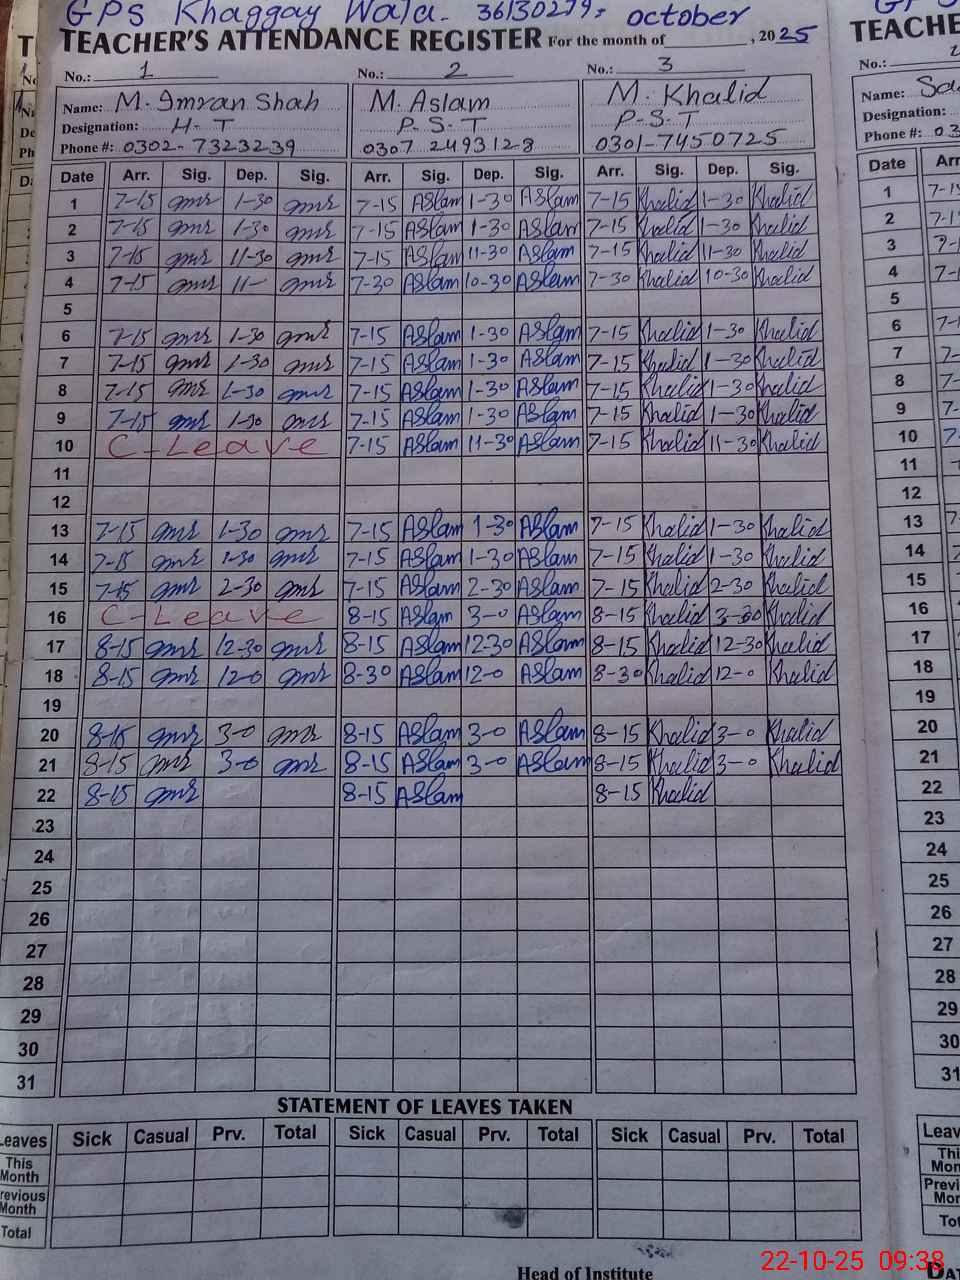 GPS Khaggay Wala. 36130279, october
TEACHER'S ATTENDANCE REGISTER For the month of , 2025
No.: 1 No.: 2 No.: 3
Name: M. Imran Shah M. Aslam M. Khalid
Designation: H.T P.S.T P.S.T
Phone #: 0302-7323239 0307 2493128 0301-7450725
Date Arr. Sig. Dep. Sig. Arr. Sig. Dep. Sig. Arr. Sig. Dep. Sig.
1 7-15 1-30 7-15 Aslam 1-30 Aslam 7-15 Khalid 1-30 Khalid
2 7-15 1-30 7-15 Aslam 1-30 Aslam 7-15 Khalid 1-30 Khalid
3 7-15 11-30 7-15 Aslam 11-30 Aslam 7-15 Khalid 11-30 Khalid
4 7-15 11- 7-30 Aslam 10-30 Aslam 7-30 Khalid 10-30 Khalid
5
6 7-15 1-30 7-15 Aslam 1-30 Aslam 7-15 Khalid 1-30 Khalid
7 7-15 1-30 7-15 Aslam 1-30 Aslam 7-15 Khalid 1-30 Khalid
8 7-15 1-30 7-15 Aslam 1-30 Aslam 7-15 Khalid 1-30 Khalid
9 7-15 1-30 7-15 Aslam 1-30 Aslam 7-15 Khalid 1-30 Khalid
10 C-Leave 7-15 Aslam 11-30 Aslam 7-15 Khalid 11-30 Khalid
11
12
13 7-15 1-30 7-15 Aslam 1-30 Aslam 7-15 Khalid 1-30 Khalid
14 7-15 1-30 7-15 Aslam 1-30 Aslam 7-15 Khalid 1-30 Khalid
15 7-15 2-30 7-15 Aslam 2-30 Aslam 7-15 Khalid 2-30 Khalid
16 C-Leave 8-15 Aslam 3-0 Aslam 8-15 Khalid Khalid
17 8-15 12-30 8-15 Aslam 12-30 Aslam 8-15 Khalid 12-30 Khalid
18 8-15 12-0 8-30 Aslam 12-0 Aslam 8-30 Khalid 12-0 Khalid
19
20 8-15 3-0 8-15 Aslam 3-0 Aslam 8-15 Khalid 3-0 Khalid
21 8-15 3-0 8-15 Aslam 3-0 Aslam 8-15 Khalid 3-0 Khalid
22 8-15 8-15 Aslam 8-15 Khalid
23
24
25
26
27
28
29
30
31
STATEMENT OF LEAVES TAKEN
Leaves Sick Casual Prv. Total Sick Casual Prv. Total Sick Casual Prv. Total
This Month
Previous Month
Total
Head of Institute
22-10-25 09:38